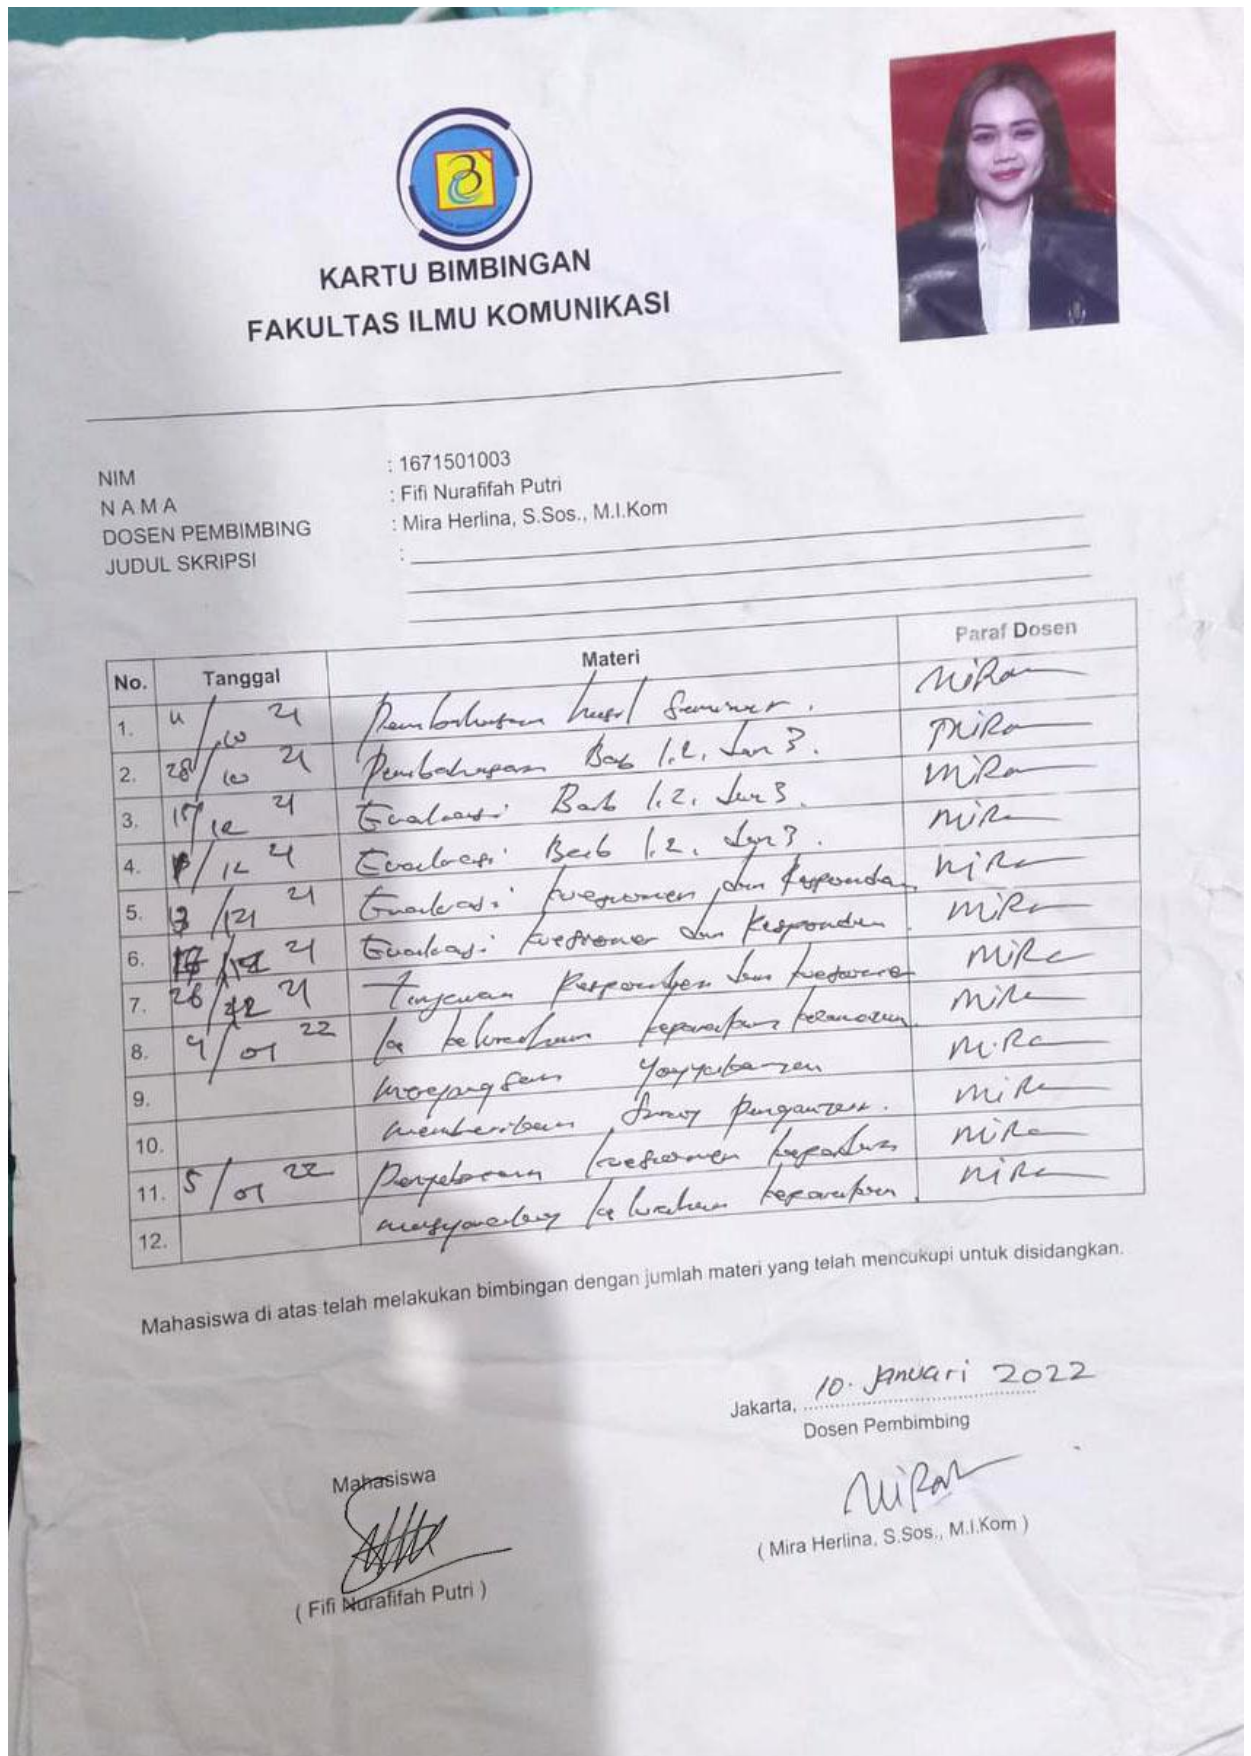 KARTU BIMBINGAN
FAKULTAS ILMU KOMUNIKASI
NIM : 1671501003
NAMA : Fifi Nurafifah Putri
DOSEN PEMBIMBING : Mira Herlina, S.Sos., M.I.Kom
JUDUL SKRIPSI :
No. Tanggal Materi Paraf Dosen
1. /10 21 Pembahasan hasil Seminar. Mira
2. 28/10 21 Pembahasan Bab 1.2. dan 3. Mira
3. /12 21 Evaluasi Bab 1.2. dan 3. Mira
4. /12 21 Evaluasi Bab 1.2. dan 3. Mira
5. /12 21 Evaluasi kuesioner dan Responden Mira
6. /12 21 Evaluasi kuesioner dan Responden Mira
7. 26/12 21 Responden dan Mira
8. 4/01 22 ke kelurahan Mira
9. Mira
10. memberikan Mira
11. 5/01 22 Penyebaran kuesioner kepada Mira
12. kelurahan Mira
Mahasiswa di atas telah melakukan bimbingan dengan jumlah materi yang telah mencukupi untuk disidangkan.
Jakarta, 10. Januari 2022
Dosen Pembimbing
Mahasiswa
Mira
( Mira Herlina, S.Sos., M.I.Kom )
( Fifi Nurafifah Putri )